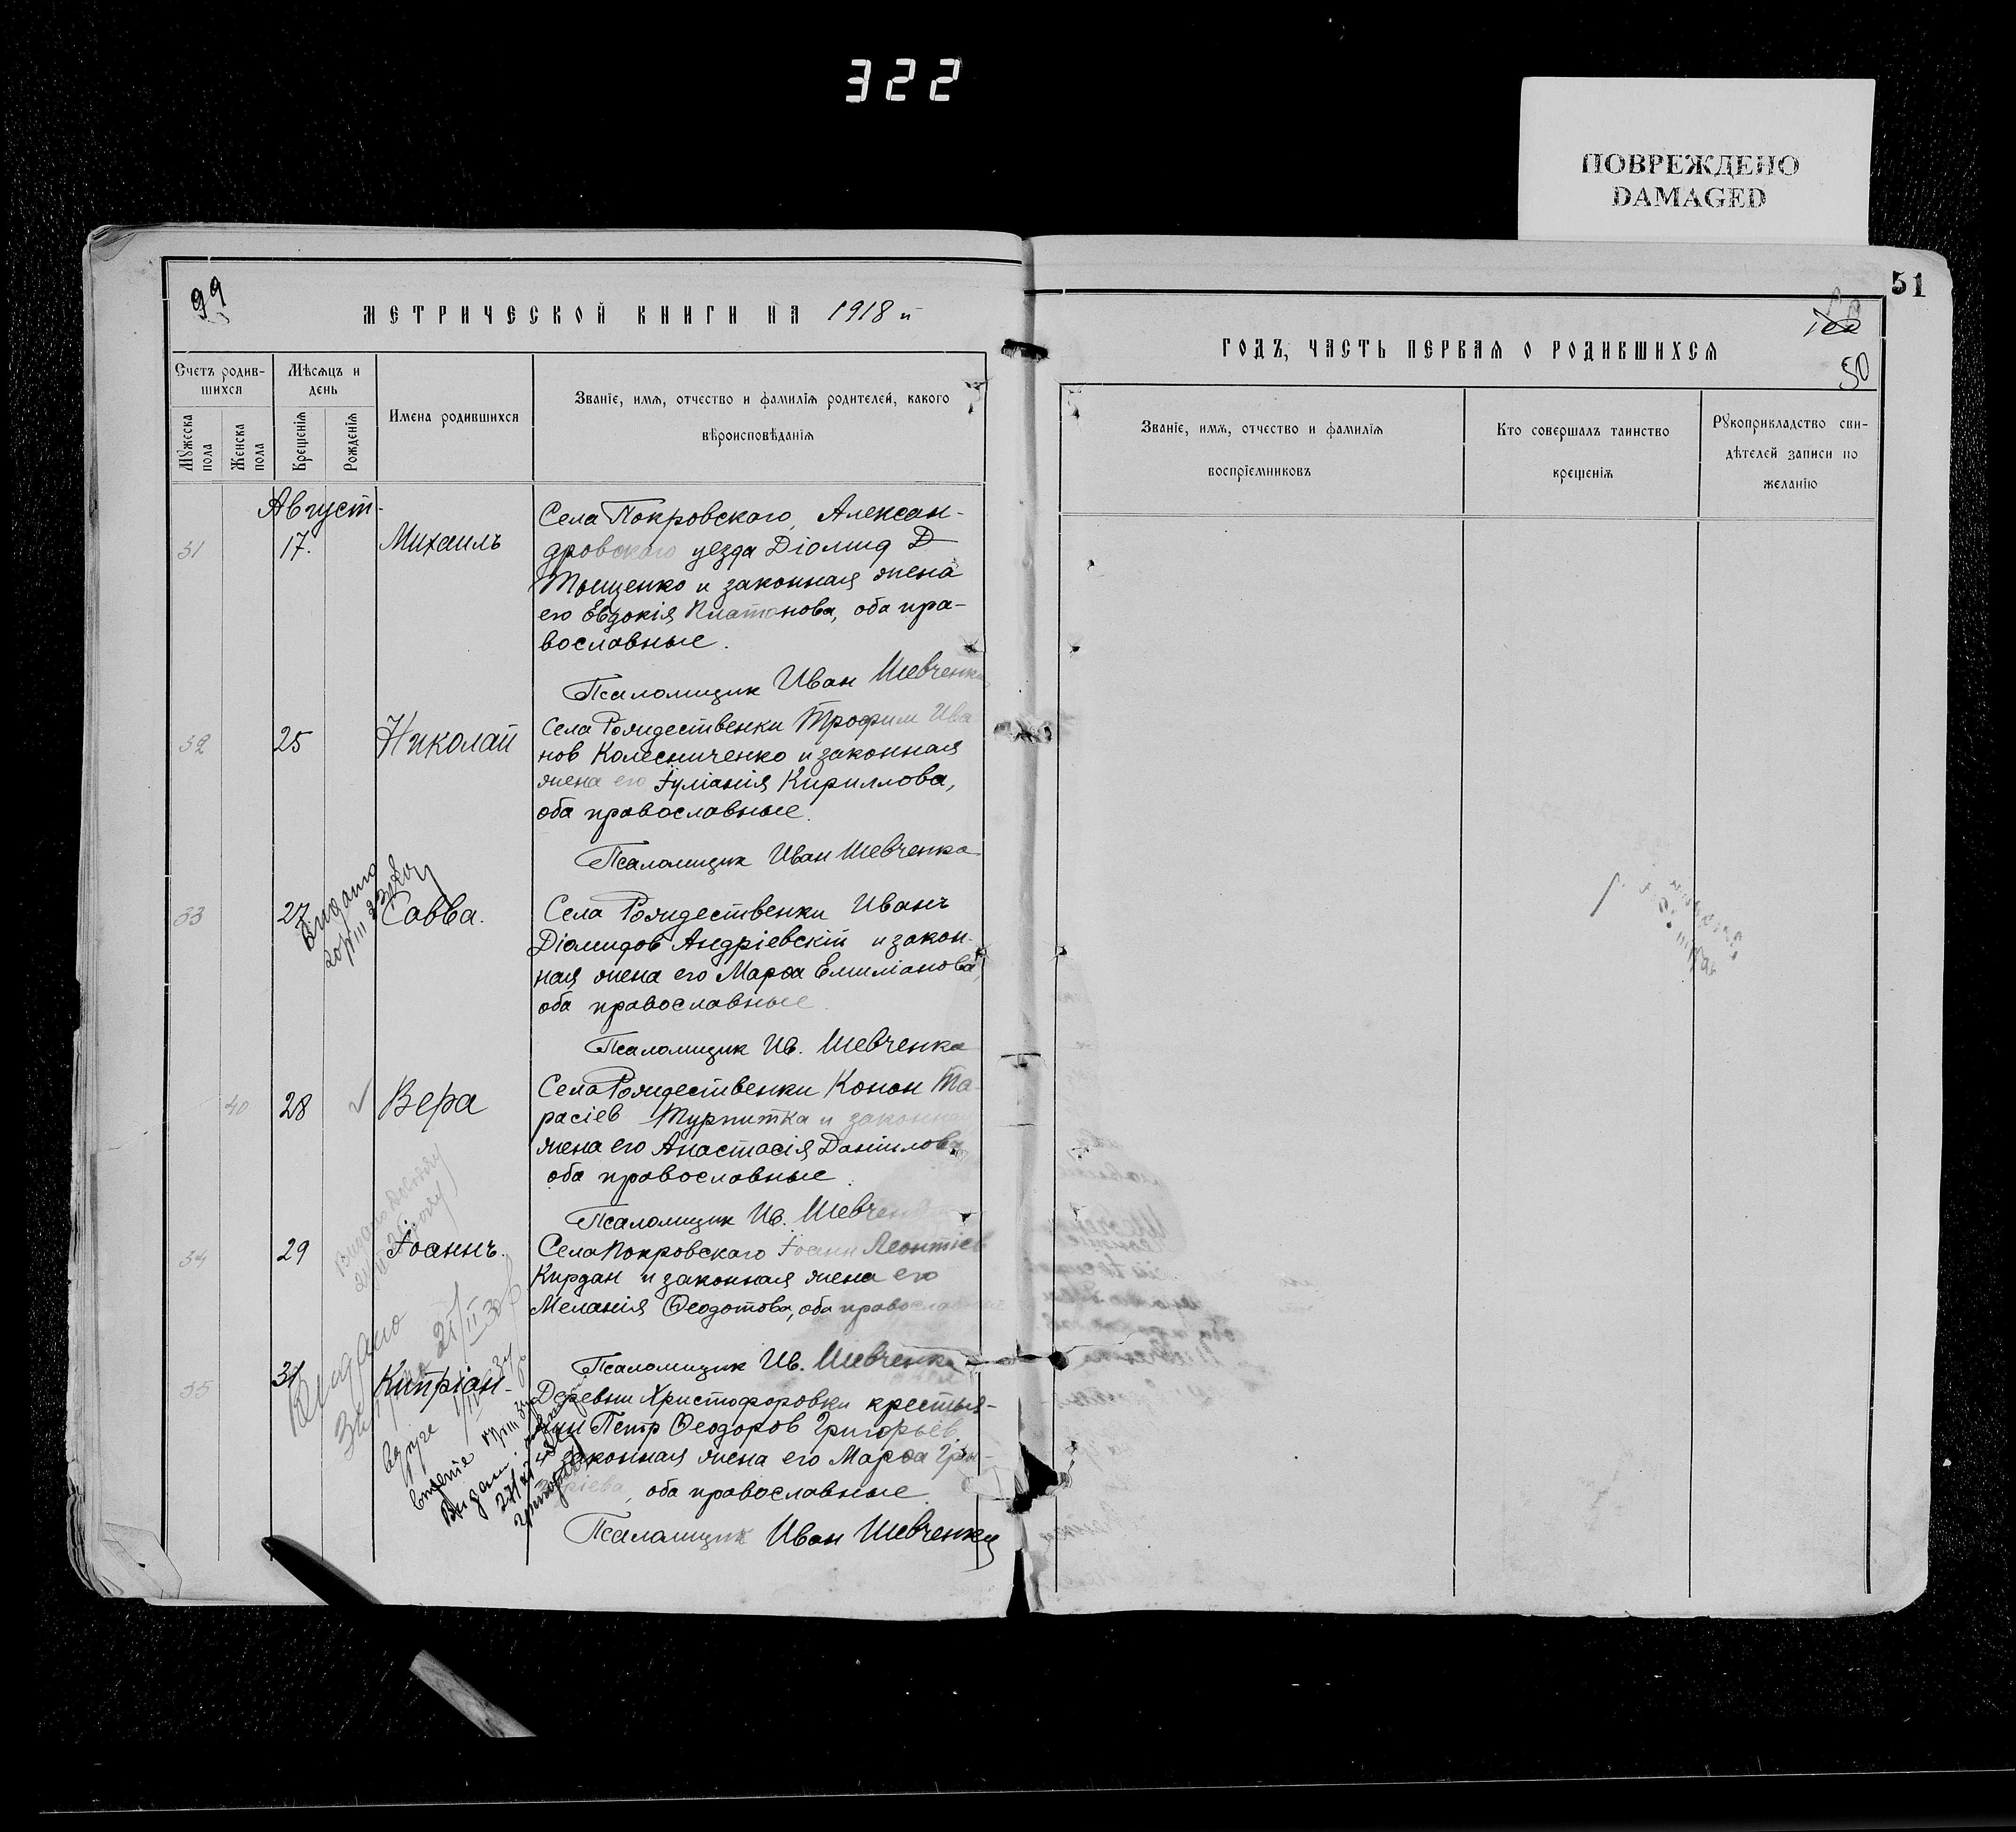 322
ПОВРЕЖДЕНО
DAMAGED
99
МЕТРИЧЕСКОЙ КНИГИ НА 1918 й
Счетъ родив-
шихся
Мѣсяцъ и
день
Мужеска
пола
Женска
пола
Крещенія
Рожденія
Имена родившихся
Званіе, имя, отчество и фамилія родителей, какого
вѣроисповѣданія
Август-
31
17.
Михаилъ
Села Покровскаго, Алексан-
дровскаго уезда Діомид Д
Тыщенко и законная жена
его Евдокія Платонова, оба пра-
вославные.
Псаломщик Иван Шевченко
32
25
Николай
Села Рождественки Трофим Ива
нов Колесниченко и законная
жена его Іуліанія Кириллова,
оба православные.
Псаломщик Иван Шевченко
33
27
Савва.
Села Рождественки Иванъ
Діомидов Андріевскій и закон-
ная жена его Марѳа Емиліанова,
оба православные
Псаломщик Ив. Шевченко
40
28
Вера
Села Рождественки Конон Та-
расіев Турпитка и законная
жена его Анастасія Даниловa
оба православные.
Псаломщик Ив. Шевченко
34
29
Іоаннъ.
Села Покровскаго Іоанн Леонтіев
Кирдан и законная жена его
Меланія Ѳеодотова, оба православные
Псаломщик Ив. Шевченко
35
31
Кипріан-
Деревни Христофоровки крестья-
нин Петр Ѳеодоров Григорьев
и законная жена его Марѳа Гри-
горіева, оба православные.
Псаломщик Иван Шевченко
Видано
Видано
51
ГОДЪ, ЧАСТЬ ПЕРВАЯ О РОДИВШИХСЯ
100
50
Званіе, имя, отчество и фамилія
воспріемниковъ
Кто совершалъ таинство
крещенія
Рукоприкладство сви-
дѣтелей записи по
желанію